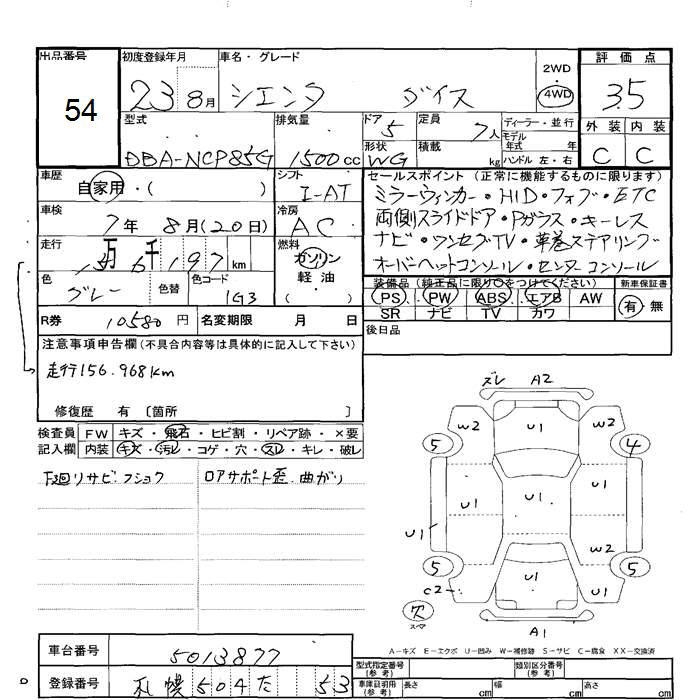 出品番号 初度登録年月 車名・グレード 2WD 4WD 評価点
54 23 8月 シエンタ ダイス 3.5
型式 排気量 ドア 5 定員 7人 ディーラー・並行 外装 内装
DBA-NCP85G 1500cc 形状 WG 積載 kg モデル年式 年 ハンドル 左・右 C C
車歴 自家用・( ) シフト I-AT セールスポイント(正常に機能するものに限ります)
ミラーウィンカー・HID・フォグ・ETC
車検 7年 8月(20日) 冷房 AC 両側スライドドア・Pガラス・キーレス
ナビ・ワンセグTV・革巻ステアリング
走行 万 千 197 km 燃料 ガソリン 軽・油 ( ) オーバーヘッドコンソール・センターコンソール
色 グレー 色替 色コード 1G3 装備品(純正品に限り○をつけてください) 新車保証書
PS PW ABS エアB AW 有・無
SR ナビ TV カワ
R券 10580円 名変期限 月 日 後日品
注意事項申告欄(不具合内容等は具体的に記入して下さい)
走行156.968km
修復歴 有 〔箇所 〕
検査員 FW キズ・飛石・ヒビ割・リペア跡・×要
記入欄 内装 キズ・汚レ・コゲ・穴・スレ・キレ・破レ
下廻リサビ・フショク ロアサポート歪・曲ガリ
ズレ A2
W2 U1 W2
5 4
U1 U1 U1
U1 W2
5 5
C2 U1 U1
欠 スペア
A1
A-キズ E-エクボ U-凹み W-補修跡 S-サビ C-腐食 XX-交換済
車台番号 5013877
型式指定番号(参考) 類別区分番号(参考)
登録番号 札幌504た 53
車庫証明用(参考) 長さ cm 幅 cm 高さ cm